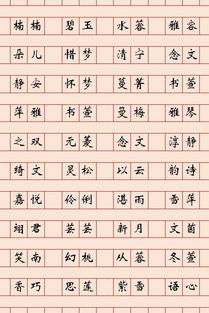 楠楠 碧玉 水蓉 雅容
朵儿 惜梦 清宁 念文
静安 怀梦 蔓菁 书萱
萍雅 书萱 曼梅 雅琴
之双 元菱 念文 淳静
绮文 灵松 以云 韵诗
嘉悦 伶俐 湛雨 香萍
翊君 芸芸 新月 文茵
笑南 幻桃 从蓉 冬萱
香巧 思莲 紫香 语心